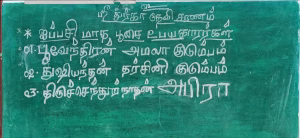 ஸ்ரீ துர்க்கா தேவி சரணம்
* ஐப்பசி மாத பூசை உபயகாரர்கள்
01. பூவேந்திரன் அமலா இடும்பம்
02. துஷியந்தன் தர்சினி குடும்பம்
03. திருச்செந்தூர்நாதன் அபிரா